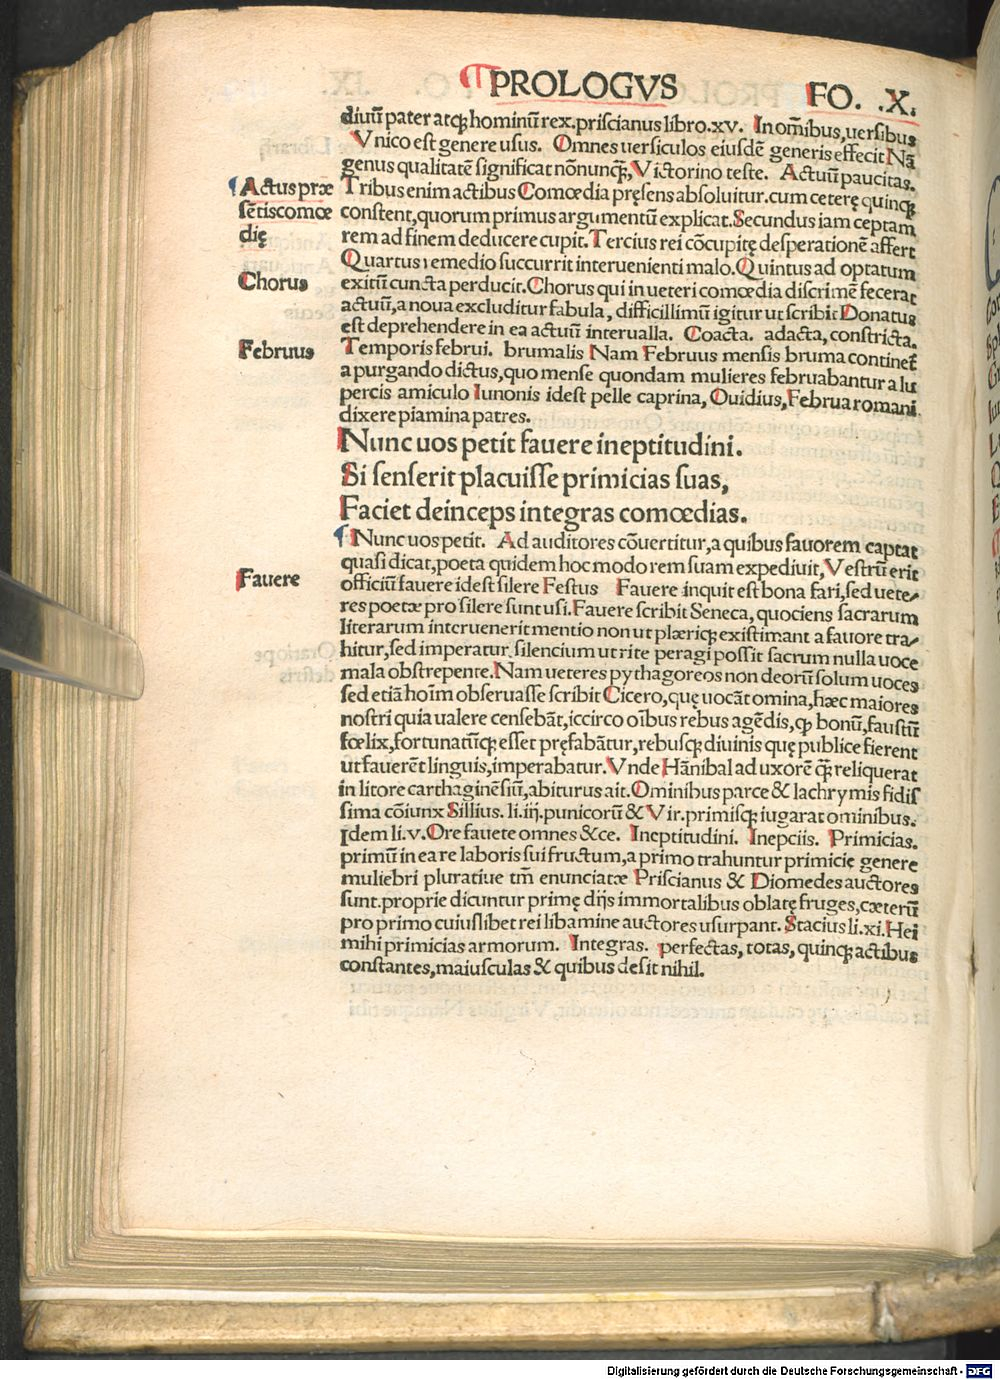 ¶PROLOGVS FO. .X.
diuū pater atqꝫ hominū rex.priscianus libro.xv. In om̄ibus,uersibus
Vnico est genere usus. Omnes uersiculos eiusdē generis effecit Nā
genus qualitatē significat nōnunqꝫ,Victorino teste. Actuū paucitas.
¶Actus præ
sētis comœ
dię
Tribus enim actibus Comœdia pręsens absoluitur.cum ceterę quinqꝫ
constent,quorum primus argumentū explicat.Secundus iam ceptam
rem ad finem deducere cupit.Tercius rei cōcupitę desperationē affert
Quartus remedio succurrit interuenienti malo.Quintus ad optatum
Chorus
exitū cuncta perducit.Chorus qui in ueteri comœdia discrimē fecerat
actuū,a noua excluditur fabula, difficillimū igitur ut scribit Donatus
est deprehendere in ea actuū interualla. Coacta. adacta,constricta.
Februus
Temporis februi. brumalis Nam Februus mensis bruma continet̄
a purgando dictus,quo mense quondam mulieres februabantur a lu
percis amiculo Iunonis idest pelle caprina, Ouidius,Februa romani
dixere piamina patres.
Nunc uos petit fauere ineptitudini.
Si senserit placuisse primicias suas,
Faciet deinceps integras comœdias.
¶Nunc uos petit. Ad auditores cōuertitur,a quibus fauorem captat
quasi dicat,poeta quidem hoc modo rem suam expediuit,Vestrū erit
Fauere
officiū fauere idest silere Festus Fauere inquit est bona fari,sed uete⸗
res poetæ pro silere sunt usi.Fauere scribit Seneca,quociens sacrarum
literarum interuenerit mentio non ut plæriqꝫ existimant a fauore tra⸗
hitur,sed imperatur silencium ut rite peragi possit sacrum nulla uoce
mala obstrepente.Nam ueteres pythagoreos non deorū solum uoces
sed etiā hoīm obseruasse scribit Cicero,quę uocāt omina,hæc maiores
nostri quia ualere censebāt,iccirco oībus rebus agēdis,ꝙ bonū,faustū
fœlix,fortunatūqꝫ esset pręfabātur,rebusqꝫ diuinis quę publice fierent
ut fauerēt linguis,imperabatur.Vnde Hānibal ad uxorē qꝫ̄ reliquerat
in litore carthaginēsiū,abiturus ait.Ominibus parce & lachrymis fidis
sima cōiunx Sillius. li.iij.punicorū & Vir.primisqꝫ iugarat ominibus.
Idem li.v.Ore fauete omnes &ce. Ineptitudini. Inepciis. Primicias.
primū in ea re laboris sui fructum,a primo trahuntur primicię genere
muliebri pluratiue tm̄ enunciatæ Priscianus & Diomedes auctores
sunt.proprie dicuntur primę dijs immortalibus oblatę fruges,cæterū
pro primo cuiuslibet rei libamine auctores usurpant.Stacius li.xi.Hei
mihi primicias armorum. Integras. perfectas, totas, quinqꝫ actibus
constantes,maiusculas & quibus desit nihil.
Digitalisierung gefördert durch die Deutsche Forschungsgemeinschaft - DFG